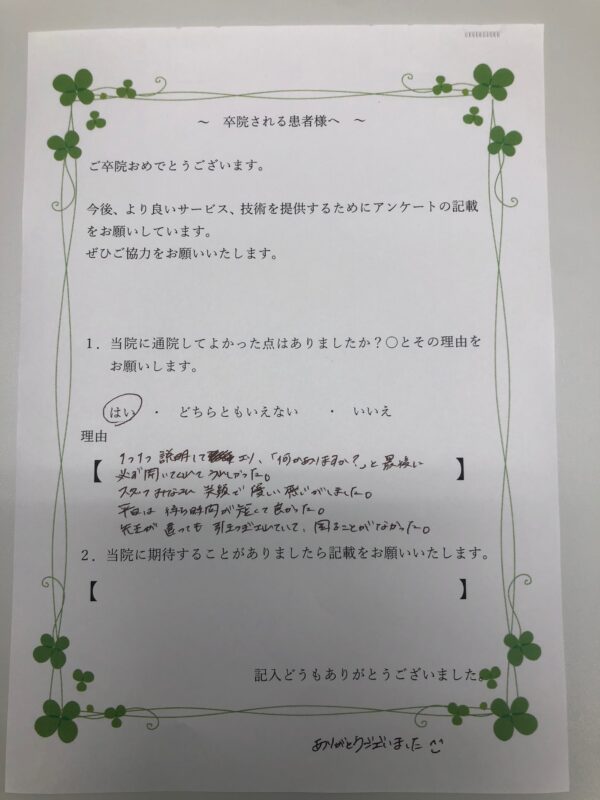 ～ 卒院される患者様へ ～
ご卒院おめでとうございます。
今後、より良いサービス、技術を提供するためにアンケートの記載
をお願いしています。
ぜひご協力をお願いいたします。
1．当院に通院してよかった点はありましたか？〇とその理由を
お願いします。
はい ・ どちらともいえない ・ いいえ
理由
【 1つ1つ説明して 「何かありますか？」と最後に
必ず聞いてくれて うれしかった。 】
スタッフみなさん 笑顔で優しい感じがしました。
平日は待ち時間が短くて良かった。
先生が違っても 引きつぎ出来ていて、困ることがなかった。
2．当院に期待することがありましたら記載をお願いいたします。
【 】
記入どうもありがとうございました。
ありがとうございました